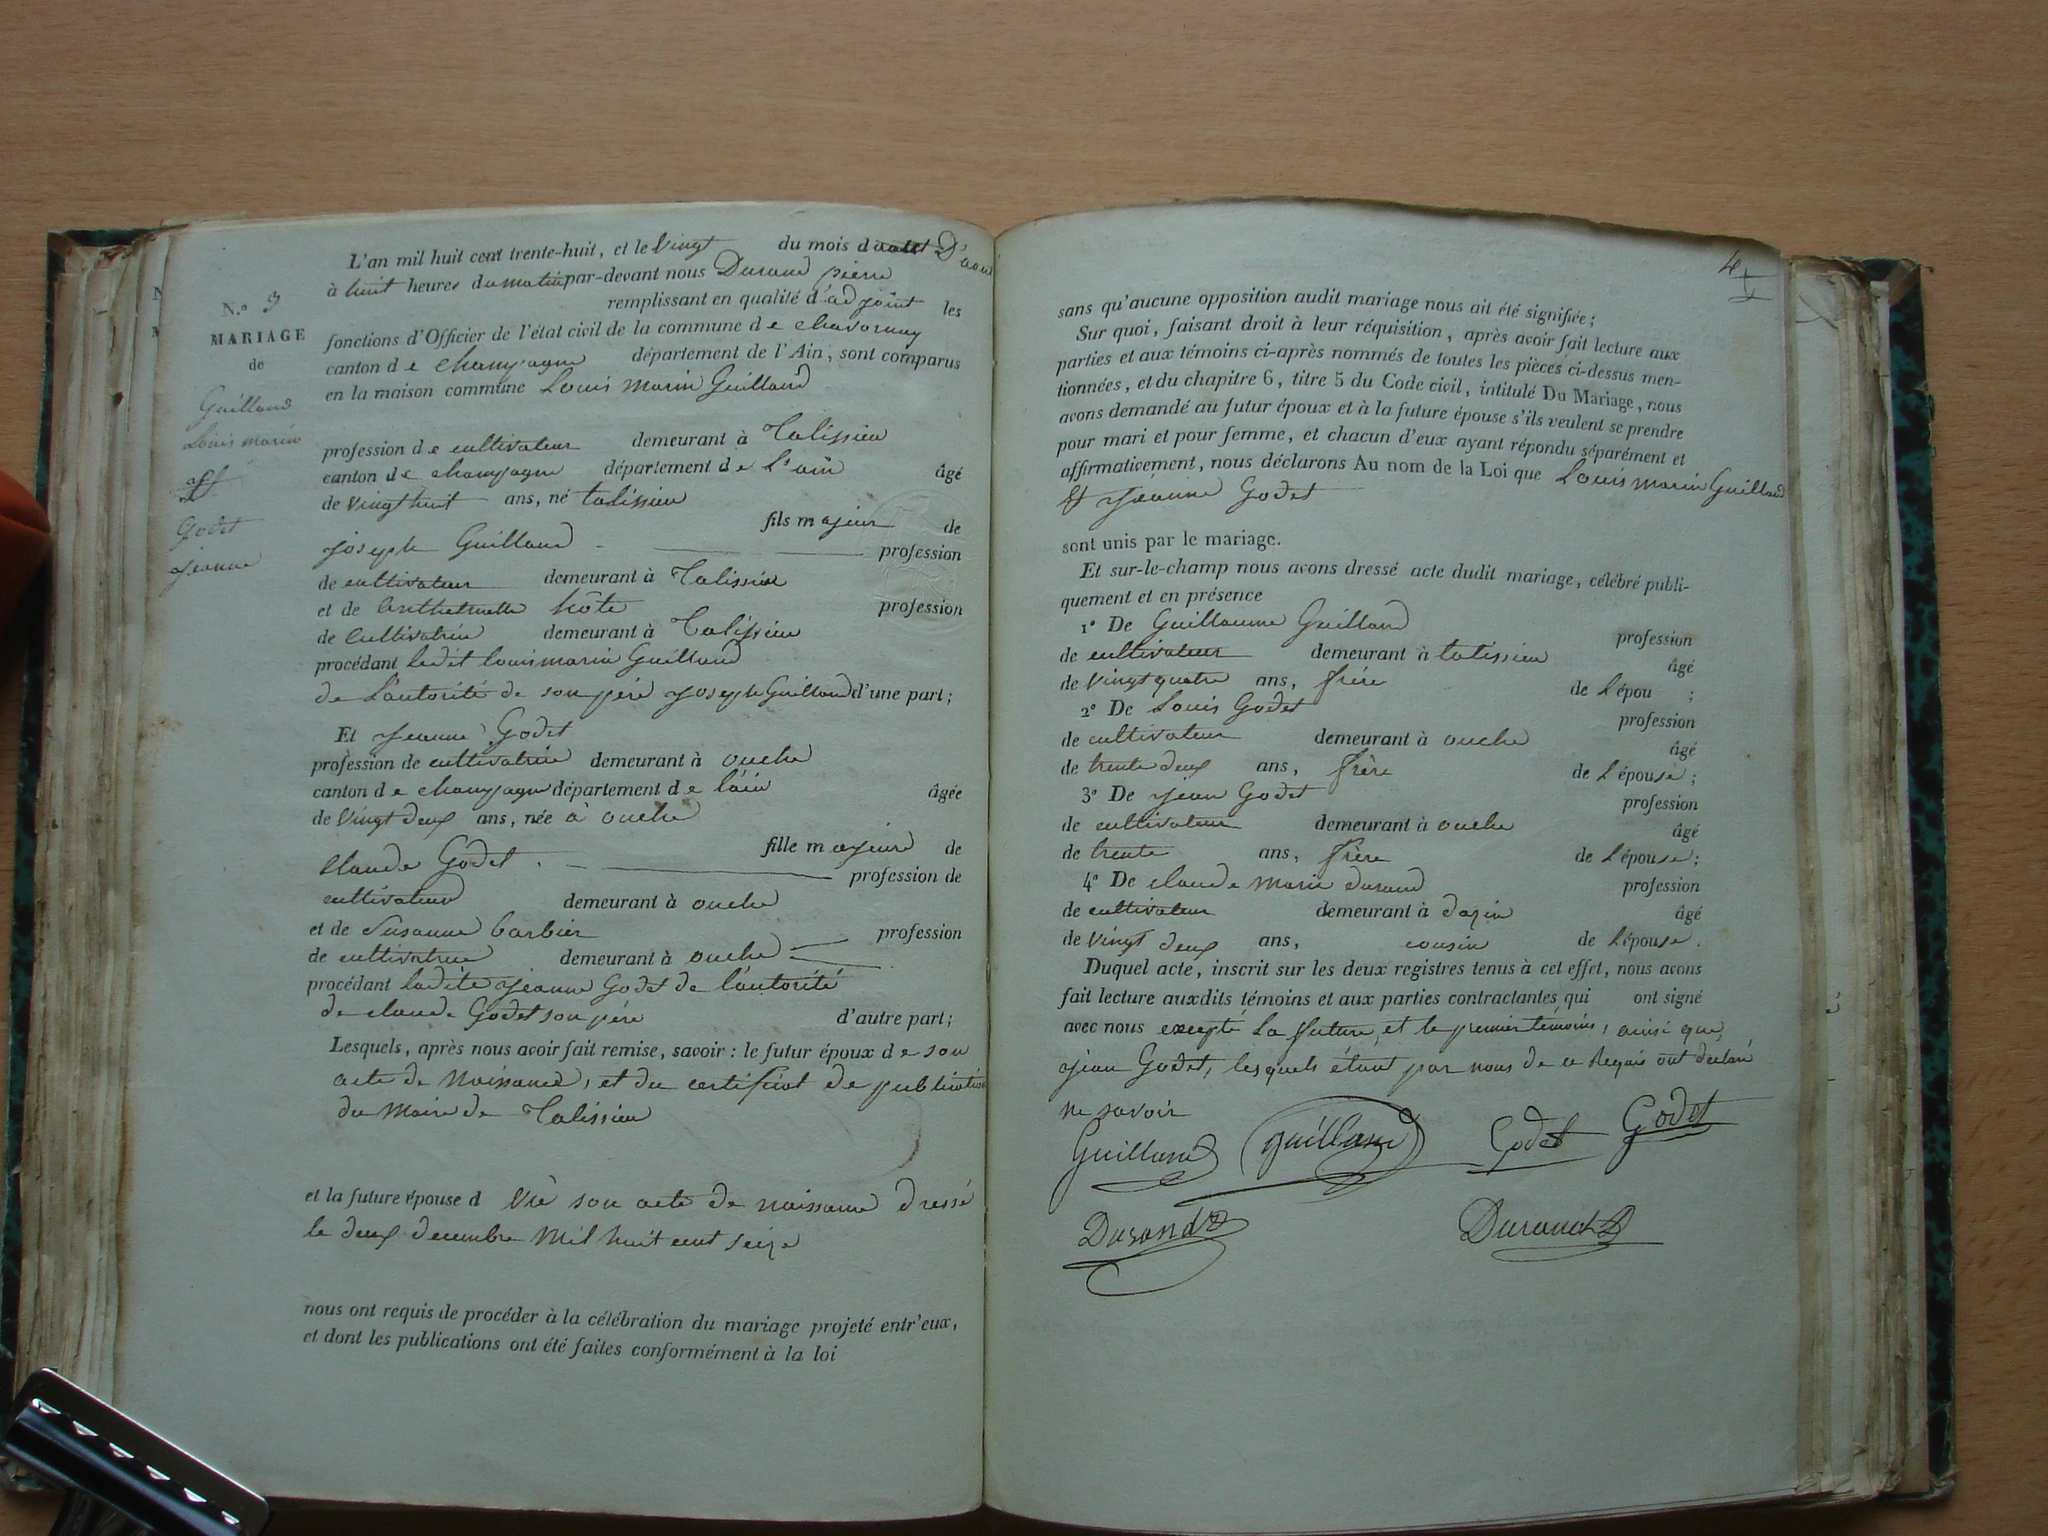 N.° 3
MARIAGE
de
Guilland
Louis marin
et
Godet
jeanne
L'an mil huit cent trente-huit, et le vingt du mois d'aout D'aout
à huit heures du matin par-devant nous Durand pierre
remplissant en qualité d'adjoint les
fonctions d'Officier de l'état civil de la commune de chavornay
canton de champagne département de l'Ain, sont comparus
en la maison commune Louis marin Guilland
profession de cultivateur demeurant à Talissieu
canton de champagne département de L'ain âgé
de vingt huit ans, né talissieu
fils majeur de
joseph Guilland profession
de cultivateur demeurant à Talissieu
et de Anthelmette hôte profession
de cultivatrice demeurant à Talissieu
procédant ledit louis marin Guilland
de l'autorité de son père joseph Guilland d'une part;
Et jeanne Godet
profession de cultivatrice demeurant à ouche
canton de champagne département de l'ain âgée
de vingt deux ans, née à ouche
fille majeure de
claude Godet profession de
cultivateur demeurant à ouche
et de Susanne barbier profession
de cultivatrice demeurant à ouche
procédant ladite jeanne Godet de l'autorité
de claude Godet son père d'autre part;
Lesquels, après nous avoir fait remise, savoir : le futur époux de son
acte de Naissance, et du certificat de publication
du Maire de Talissieu
et la future épouse d son acte de naissance dressé
le deux decembre Mil huit cent seize
nous ont requis de procéder à la célébration du mariage projeté entr'eux,
et dont les publications ont été faites conformément à la loi
4
sans qu'aucune opposition audit mariage nous ait été signifiée;
Sur quoi, faisant droit à leur réquisition, après avoir fait lecture aux
parties et aux témoins ci-après nommés de toutes les pièces ci-dessus men-
tionnées, et du chapitre 6, titre 5 du Code civil, intitulé Du Mariage, nous
avons demandé au futur époux et à la future épouse s'ils veulent se prendre
pour mari et pour femme, et chacun d'eux ayant répondu séparément et
affirmativement, nous déclarons Au nom de la Loi que Louis marin Guilland
Et jeanne Godet
sont unis par le mariage.
Et sur-le-champ nous avons dressé acte dudit mariage, célébré publi-
quement et en présence
1° De Guillaume Guilland profession
de cultivateur demeurant à talissieu âgé
de vingt quatre ans, frère de l'épou ;
2° De Louis Godet profession
de cultivateur demeurant à ouche âgé
de trente deux ans, frère de l'épouse;
3° De jean Godet profession
de cultivateur demeurant à ouche âgé
de trente ans, frère de l'épouse;
4° De claude Marie durand profession
de cultivateur demeurant à dazin âgé
de vingt deux ans, cousin de l'épouse.
Duquel acte, inscrit sur les deux registres tenus à cet effet, nous avons
fait lecture auxdits témoins et aux parties contractantes qui ont signé
avec nous excepté la future, et le premier témoins, ainsi que,
jean Godet, lesquels étant par nous de ce Requis ont déclaré
ne savoir
Guilland Guilland Godet Godet
Durand Durand